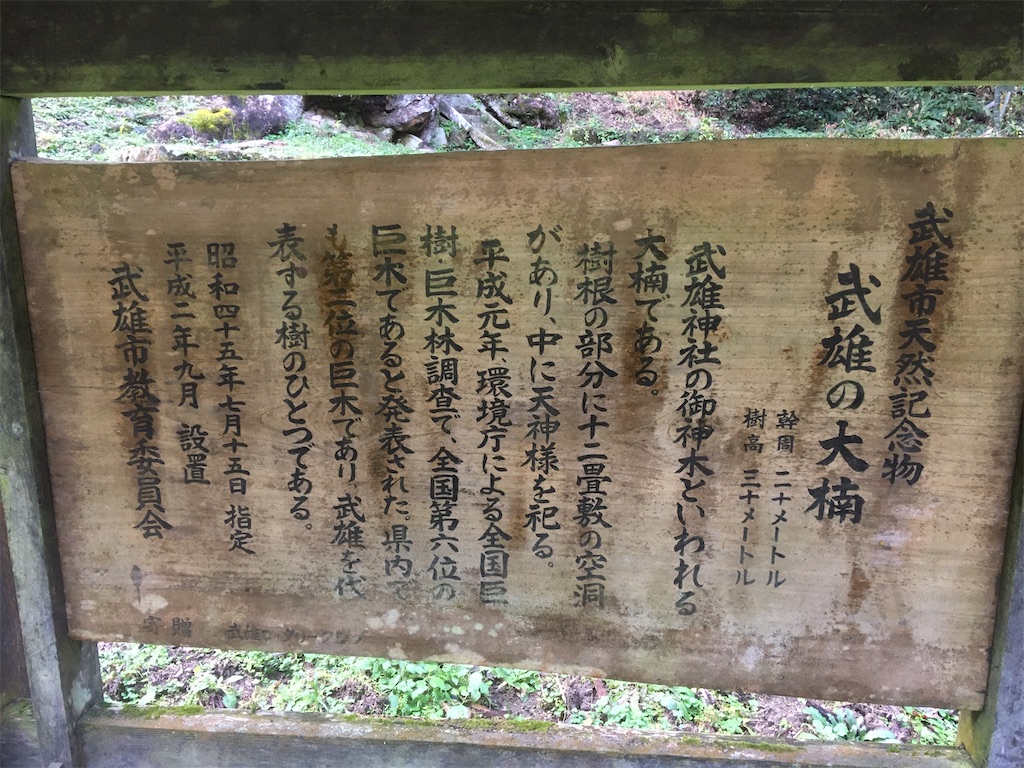 武雄市天然記念物
武雄の大楠
幹周 二十メートル
樹高 三十メートル
武雄神社の御神木といわれる
大楠である。
樹根の部分に十二畳敷の空洞
があり、中に天神様を祀る。
平成元年、環境庁による全国巨
樹巨木林調査で、全国第六位の
巨木であると発表された。県内で
も第二位の巨木であり、武雄を代
表する樹のひとつである。
昭和四十五年七月十五日 指定
平成二年九月 設置
武雄市教育委員会
寄贈